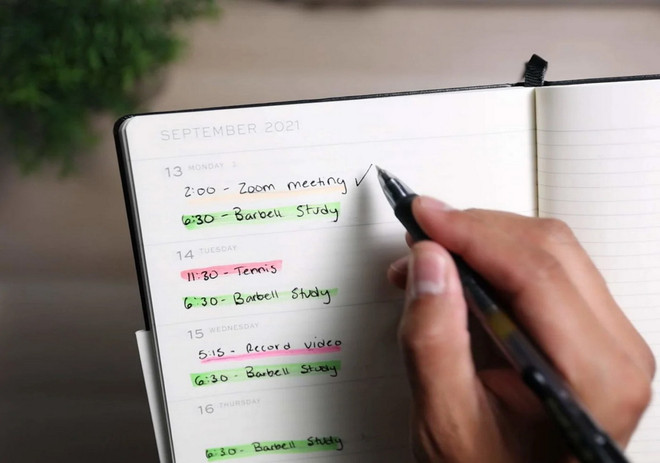 SEPTEMBER 2021
13 MONDAY
2:00 - Zoom meeting ✓
6:30 - Barbell Study
14 TUESDAY
11:30 - Tennis
6:30 - Barbell Study
15 WEDNESDAY
5:15 - Record video
6:30 - Barbell Study
16 THURSDAY
6:30 - Barbell Study